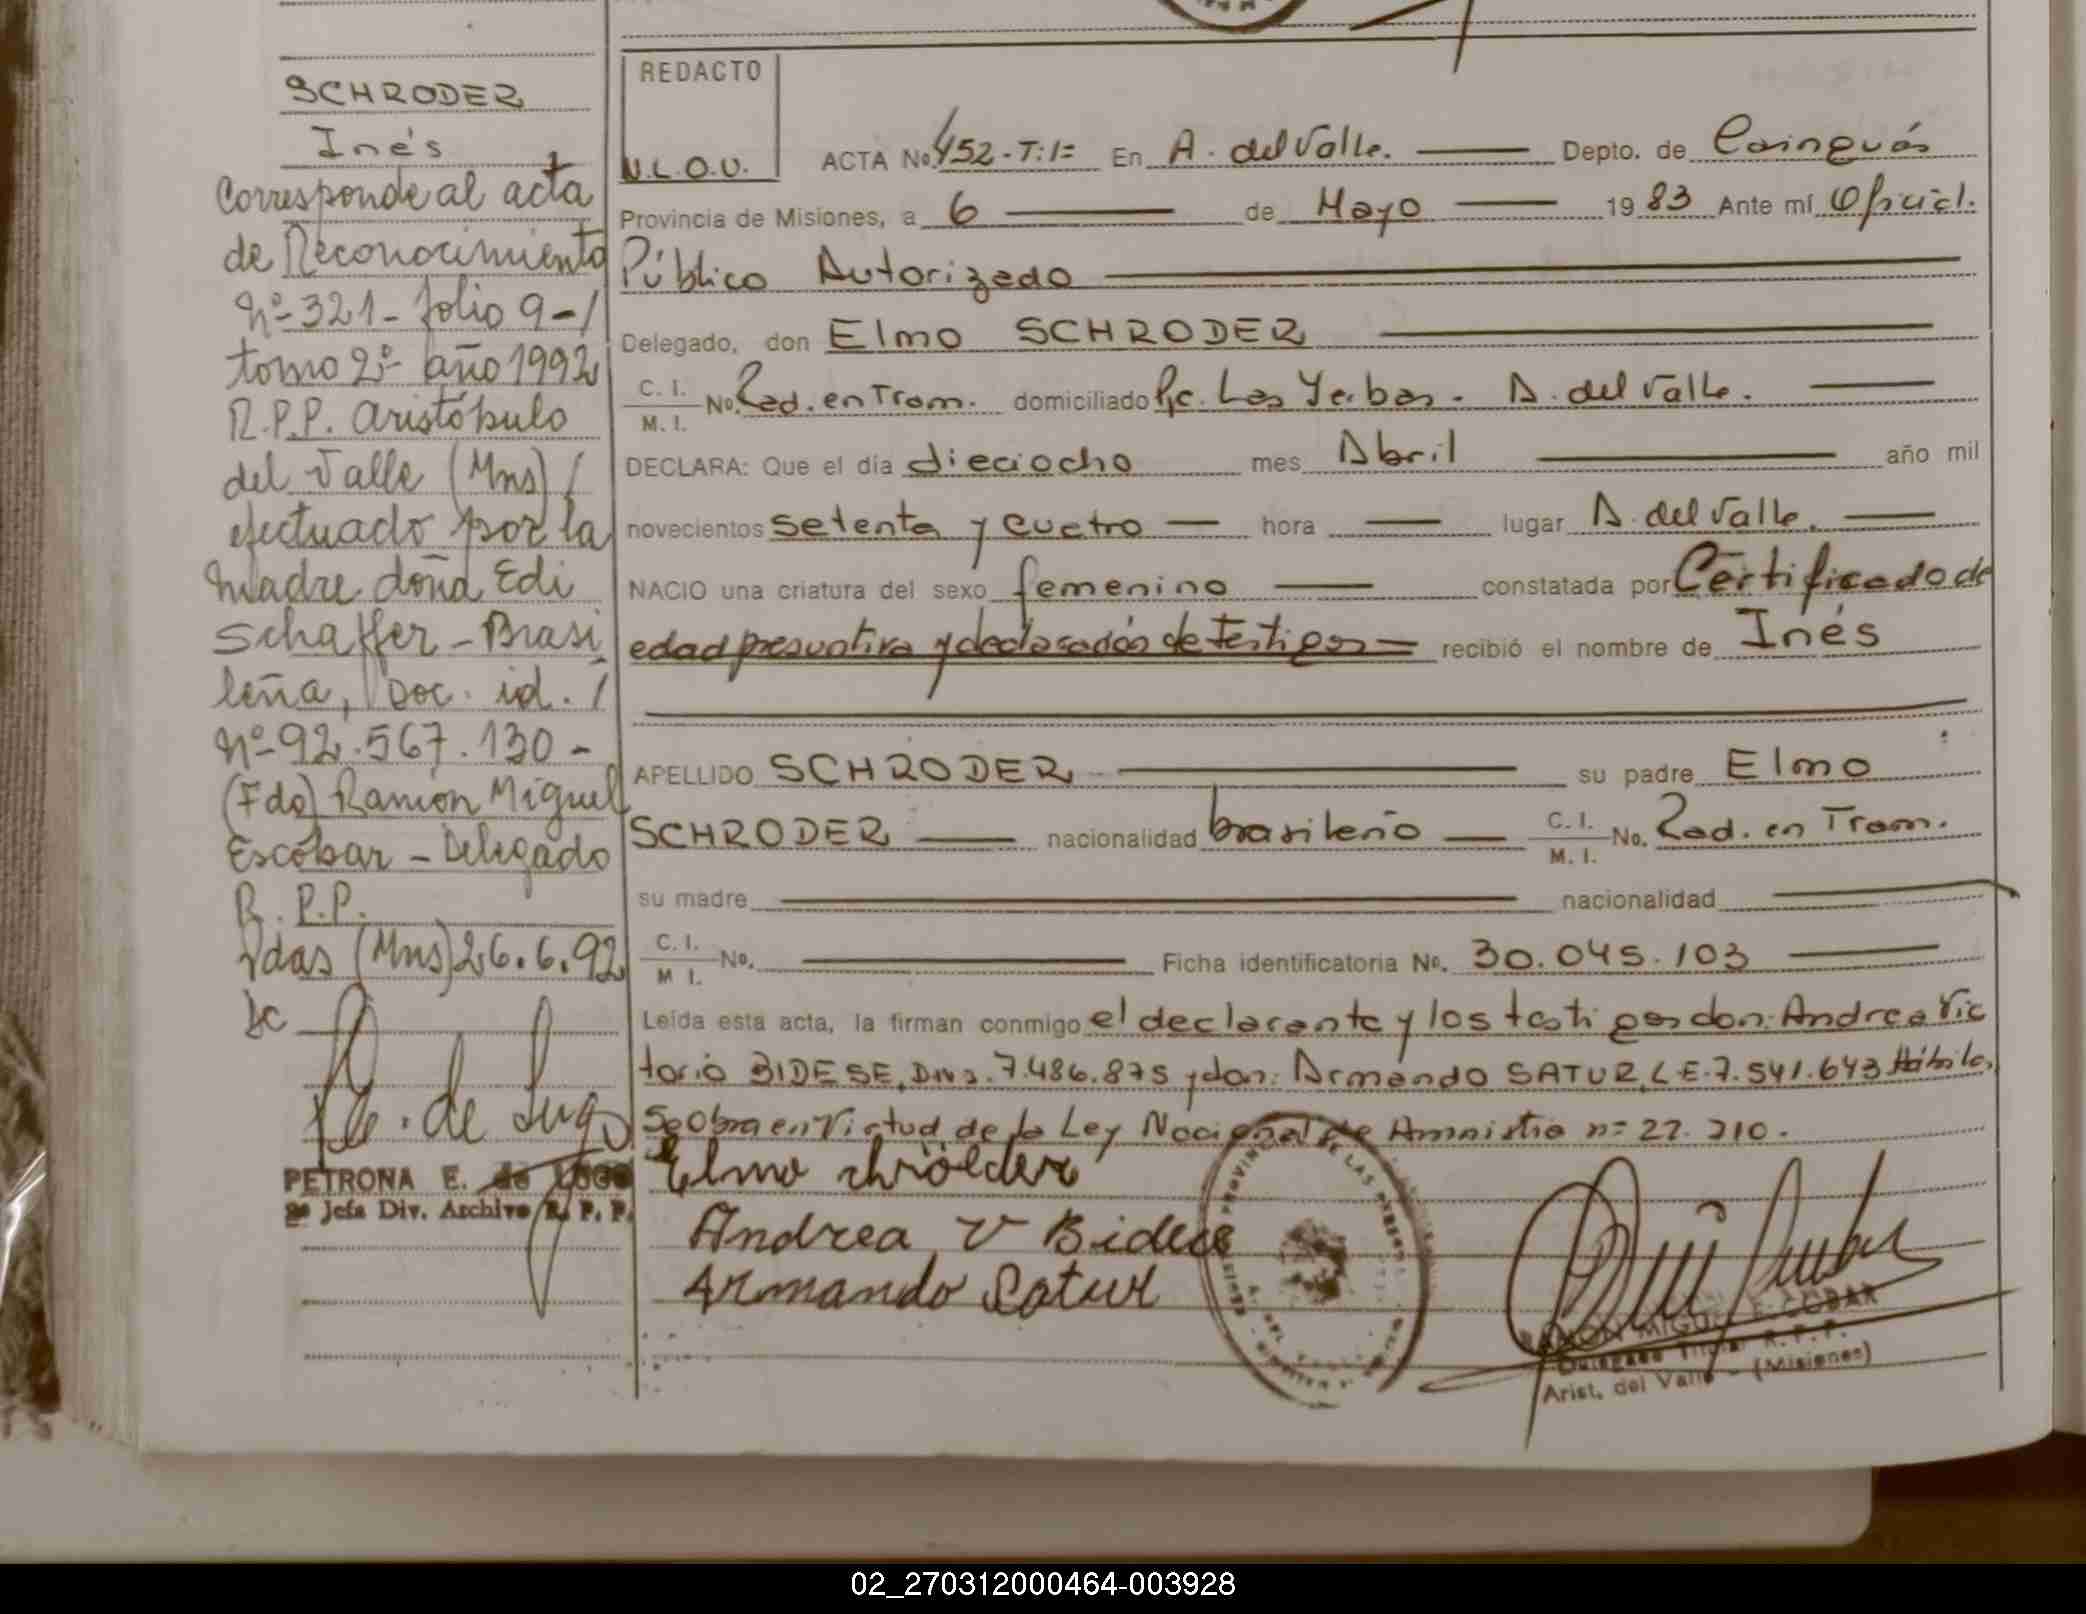 SCHRODER
Inés
Corresponde al acta
de Reconocimiento
Nº 321 - folio 9 - /
tomo 2º - año 1992
R.P.P. Aristóbulo
del Valle (Mns) /
efectuado por la
madre doña Edi
Schaffer - Brasi
leña, Doc. id. /
Nº 92.567.130 -
(Fdo) Ramón Miguel
Escobar - Delegado
R.P.P.
Pdas (Mns) 26.6.92
PETRONA E. de LUGO
2ª Jefa Div. Archivo R. P. P.
REDACTO
N.L.O.V.
ACTA No. 452 - T: 1= En A. del Valle. Depto. de Cainguás
Provincia de Misiones, a 6 de Mayo 1983 Ante mí Oficial.
Público Autorizado
Delegado, don Elmo SCHRODER
C. I. M. I. No. Rad. en Tram. domiciliado Pje. Las Yerbas. A. del Valle.
DECLARA: Que el día dieciocho mes Abril año mil
novecientos setenta y cuatro hora lugar A. del Valle.
NACIO una criatura del sexo femenino constatada por Certificado de
edad presuntiva y declaración de Testigos = recibió el nombre de Inés
APELLIDO SCHRODER su padre Elmo
SCHRODER nacionalidad brasileño C. I. M. I. No. Rad. en Tram.
su madre nacionalidad
C. I. M I. No. Ficha identificatoria No. 30.045.103
Leída esta acta, la firman conmigo el declarante y los testigos don: Andrea Vic
torio BIDESE, D.N.I. 7.486.875 y don: Armando SATUR, L.E. 7.541.643 Hábiles,
Se Obra en Virtud de la Ley Nacional de Amnistia nº 22.210.
Elmo
Andrea V Bidese
Armando Satur
RAMON MIGUEL ESCOBAR
Delegado Titular R. P. P.
Arist. del Valle - (Misiones)
02_270312000464-003928